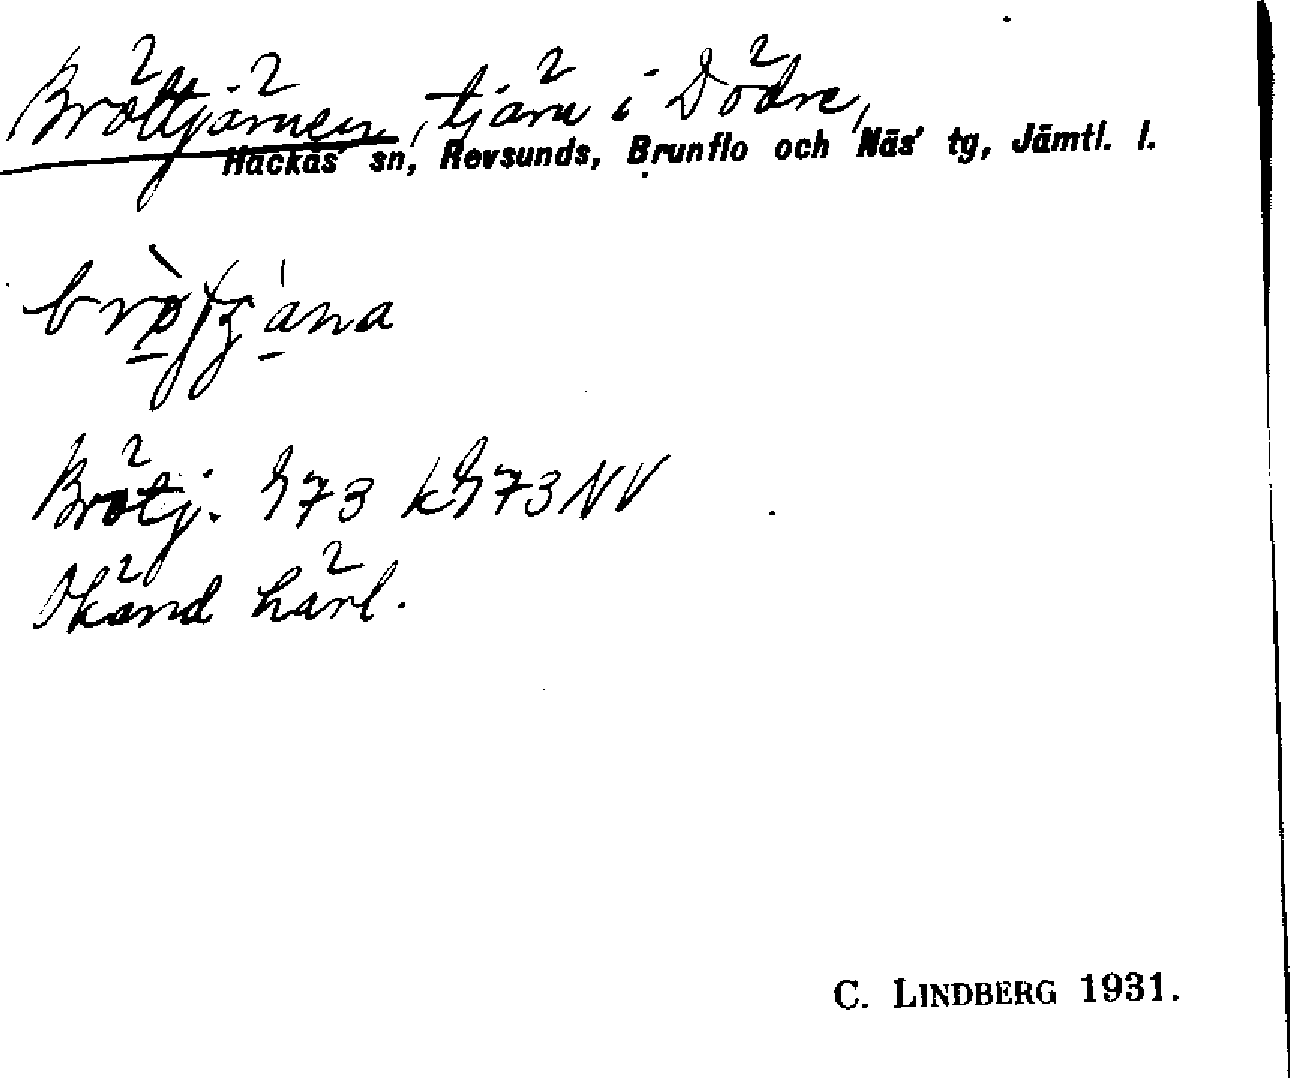 Bröttjärnen, tjärn i Dödre,
Hackås sn, Revsunds, Brunflo och Näs' tg, Jämtl. l.
Brötj. 973 k973NV
Okänd härl.
C. LINDBERG 1931.